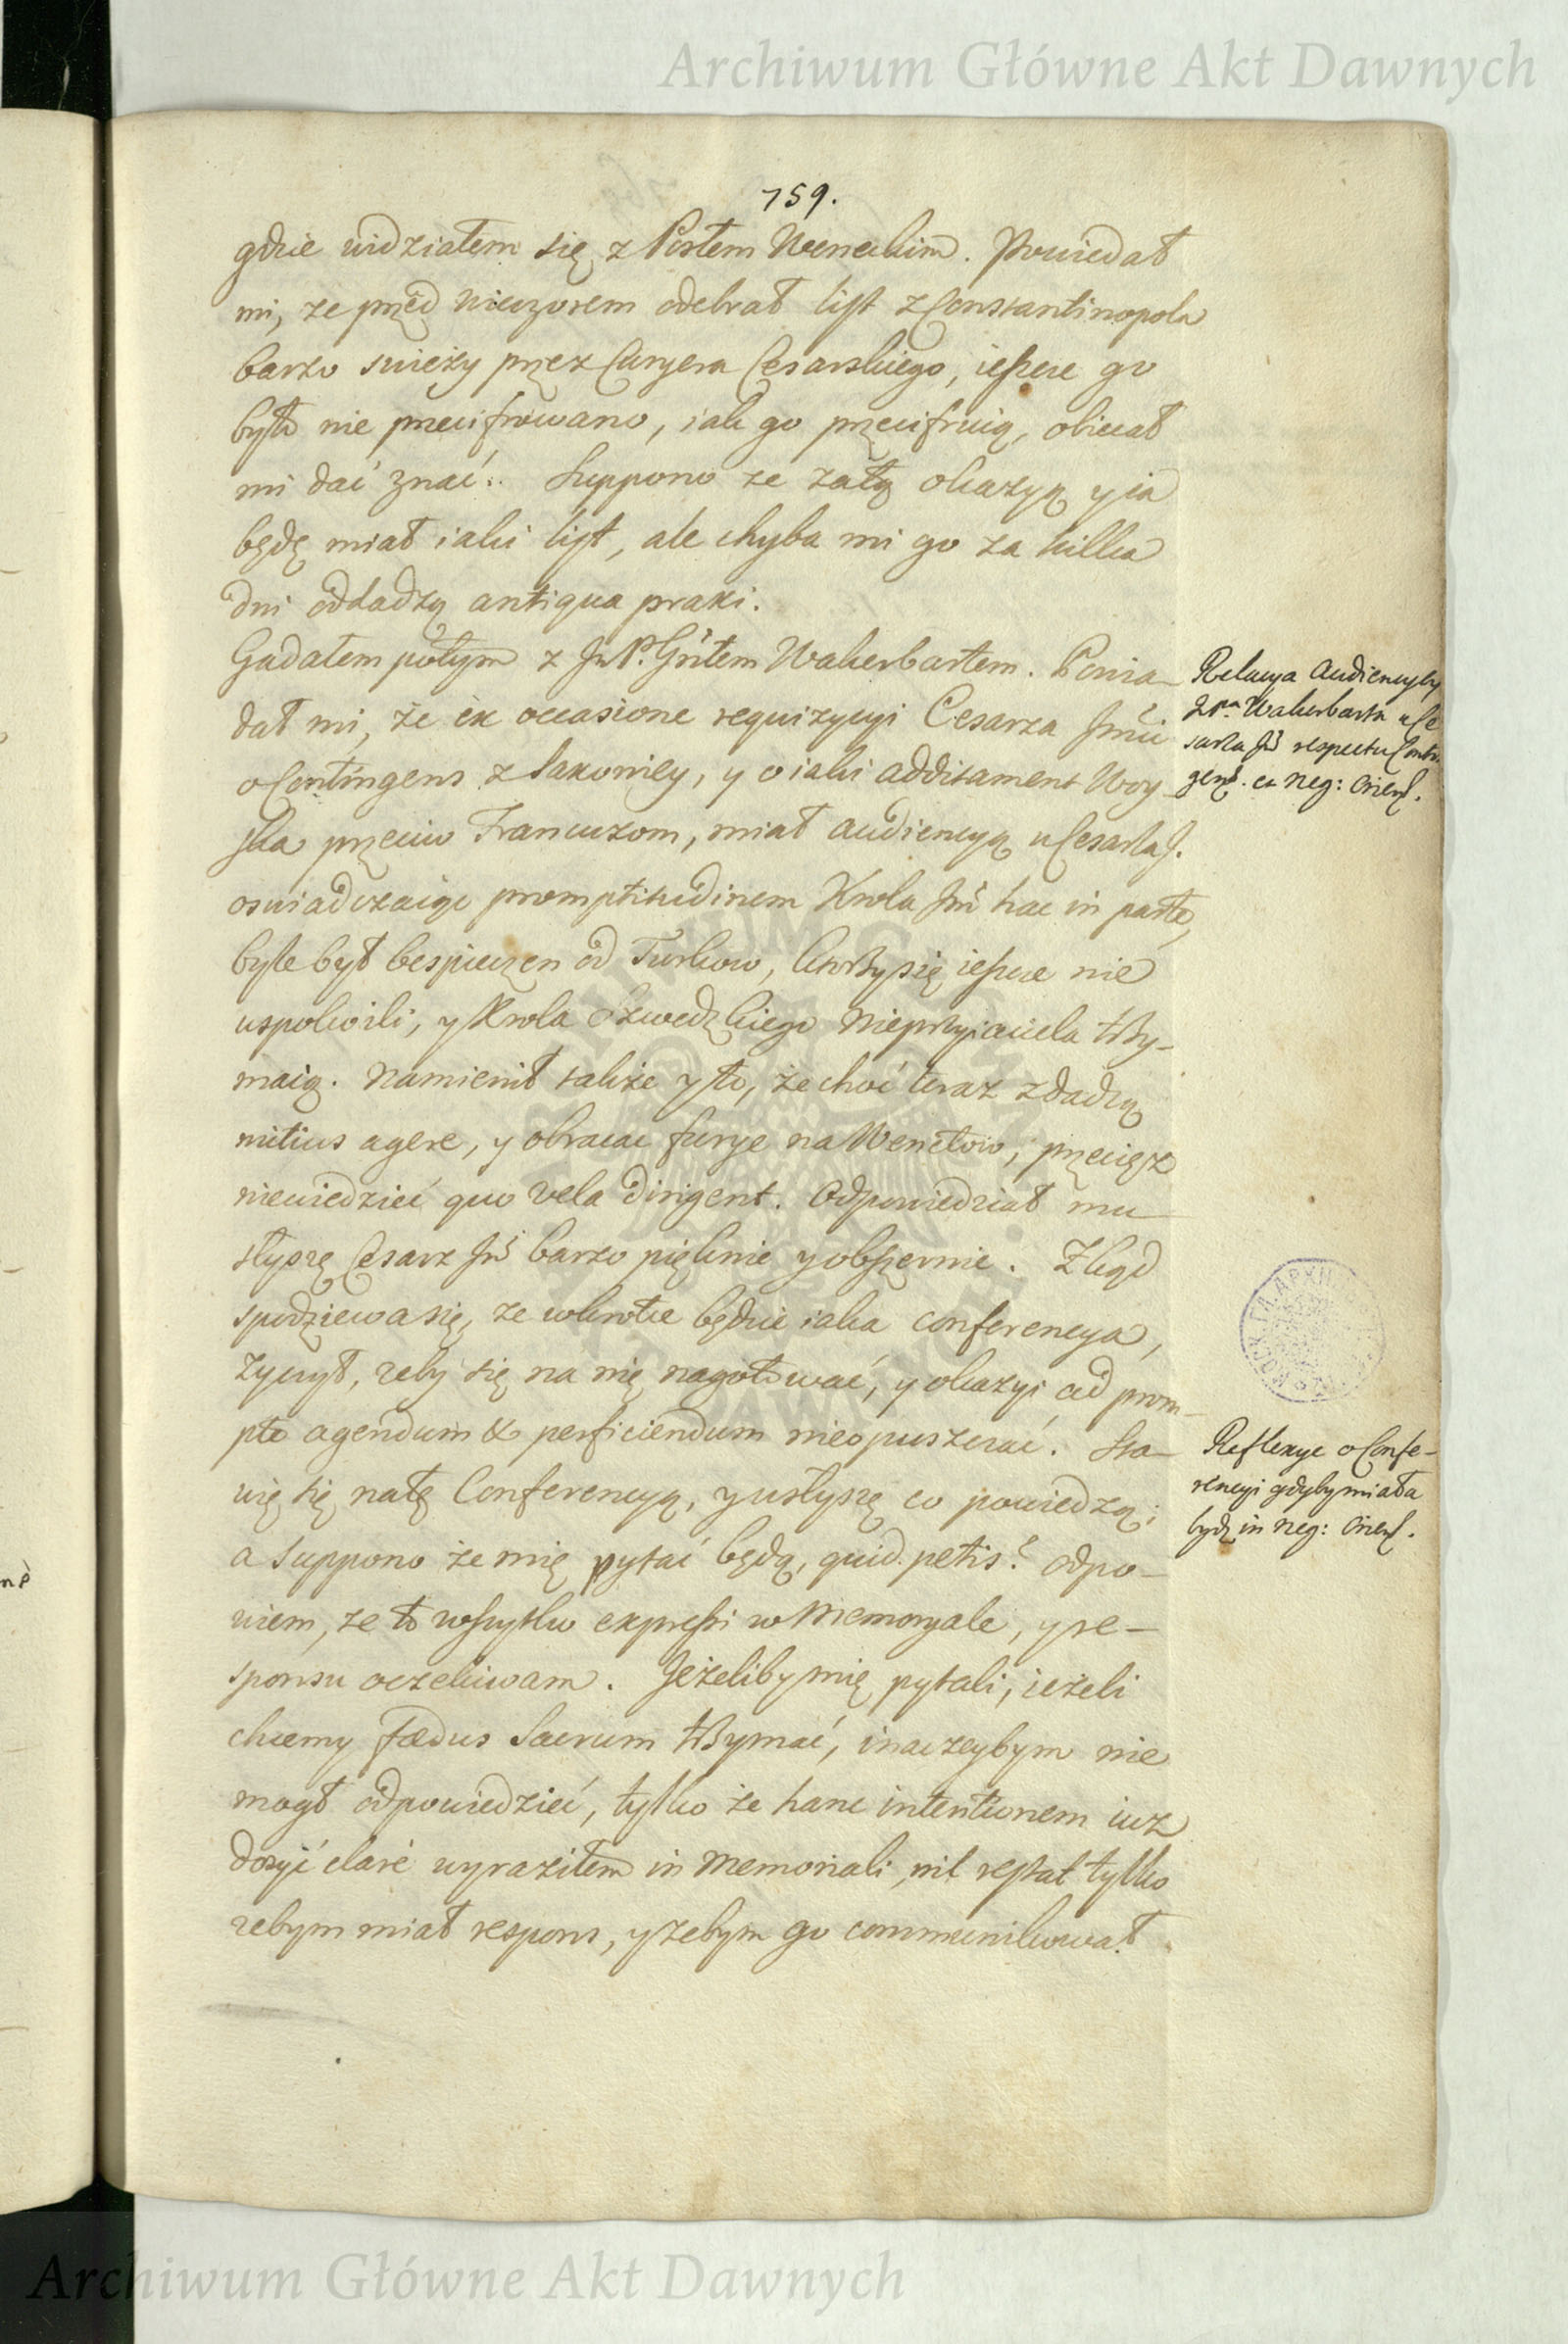 Archiwum Główne Akt Dawnych
759.
gdzie widziałem się z Posłem Weneckim. Powiedał
mi, ze przed wieczorem odebrał list z Constantinopola
barzo swieży przez Curyera Cesarskiego, ieszcze go
było nie przecifrowano, iak go przecifruią, obiecał
mi dać znać. Suppono ze za tą okazyą y ia
będę miał iaki list, ale chyba mi go za kilka
dni oddadzą antiqua praxi.
Gadałem potym z Jm P. Grffem Wakerbartem. Powia-
dał mi, że ex occasione requizycyi Cesarza Jmći
o Contingens z Saxoniey, y o iaki additament Woy-
ska przeciw Francuzom, miał audiencyą u Cesarza J.
oswiadczaiąc promptitudinem Krola Jmć hac in parte,
byle był bespieczen od Turkow, ktorzy się ieszcze nie
uspokoili, y Krola Szwedzkiego nieprzyiaciela trzy-
maią. Namienił także y to, że choć teraz zdadzą
mitius agere, y obracac furye na Wenetow, przecięsz
niewiedzieć quo vela dirigent. Odpowiedział mu
słyszę Cesarz Jmć barzo pięknie y obszernie. Zkąd
spodziewa się, ze wkrotce będzie iaka conferencya,
życzył, zeby się na nię nagotować, y okazyi ad prom-
pte agendum & perficiendum nieopuszczać. Sta-
wię się na tę Conferencyą, y usłyszę co powiedzą;
a Suppono że mię pytać będą, quid petis? odpo-
wiem, ze to wszytko expressi w Memoryale, y re-
sponsu oczekiwam. Jeżeliby mię pytali, ieżeli
chcemy fœdus Sacrum trzymać, inaczeybym nie
mogł odpowiedzieć, tylko że hanc intentionem iuz
dosyć claré wyraziłem in Memoriali, nil restat tylko
zebym miał respons, y zebym go communikował
Relacya Audiencyey
Wakerbarta u Ce
sarza Jmć respectu Contin
gens. et Neg: Orient.
Reflexye o Confe-
rencyi gdyby miała
bydz in Neg: Orient.
Archiwum Główne Akt Dawnych